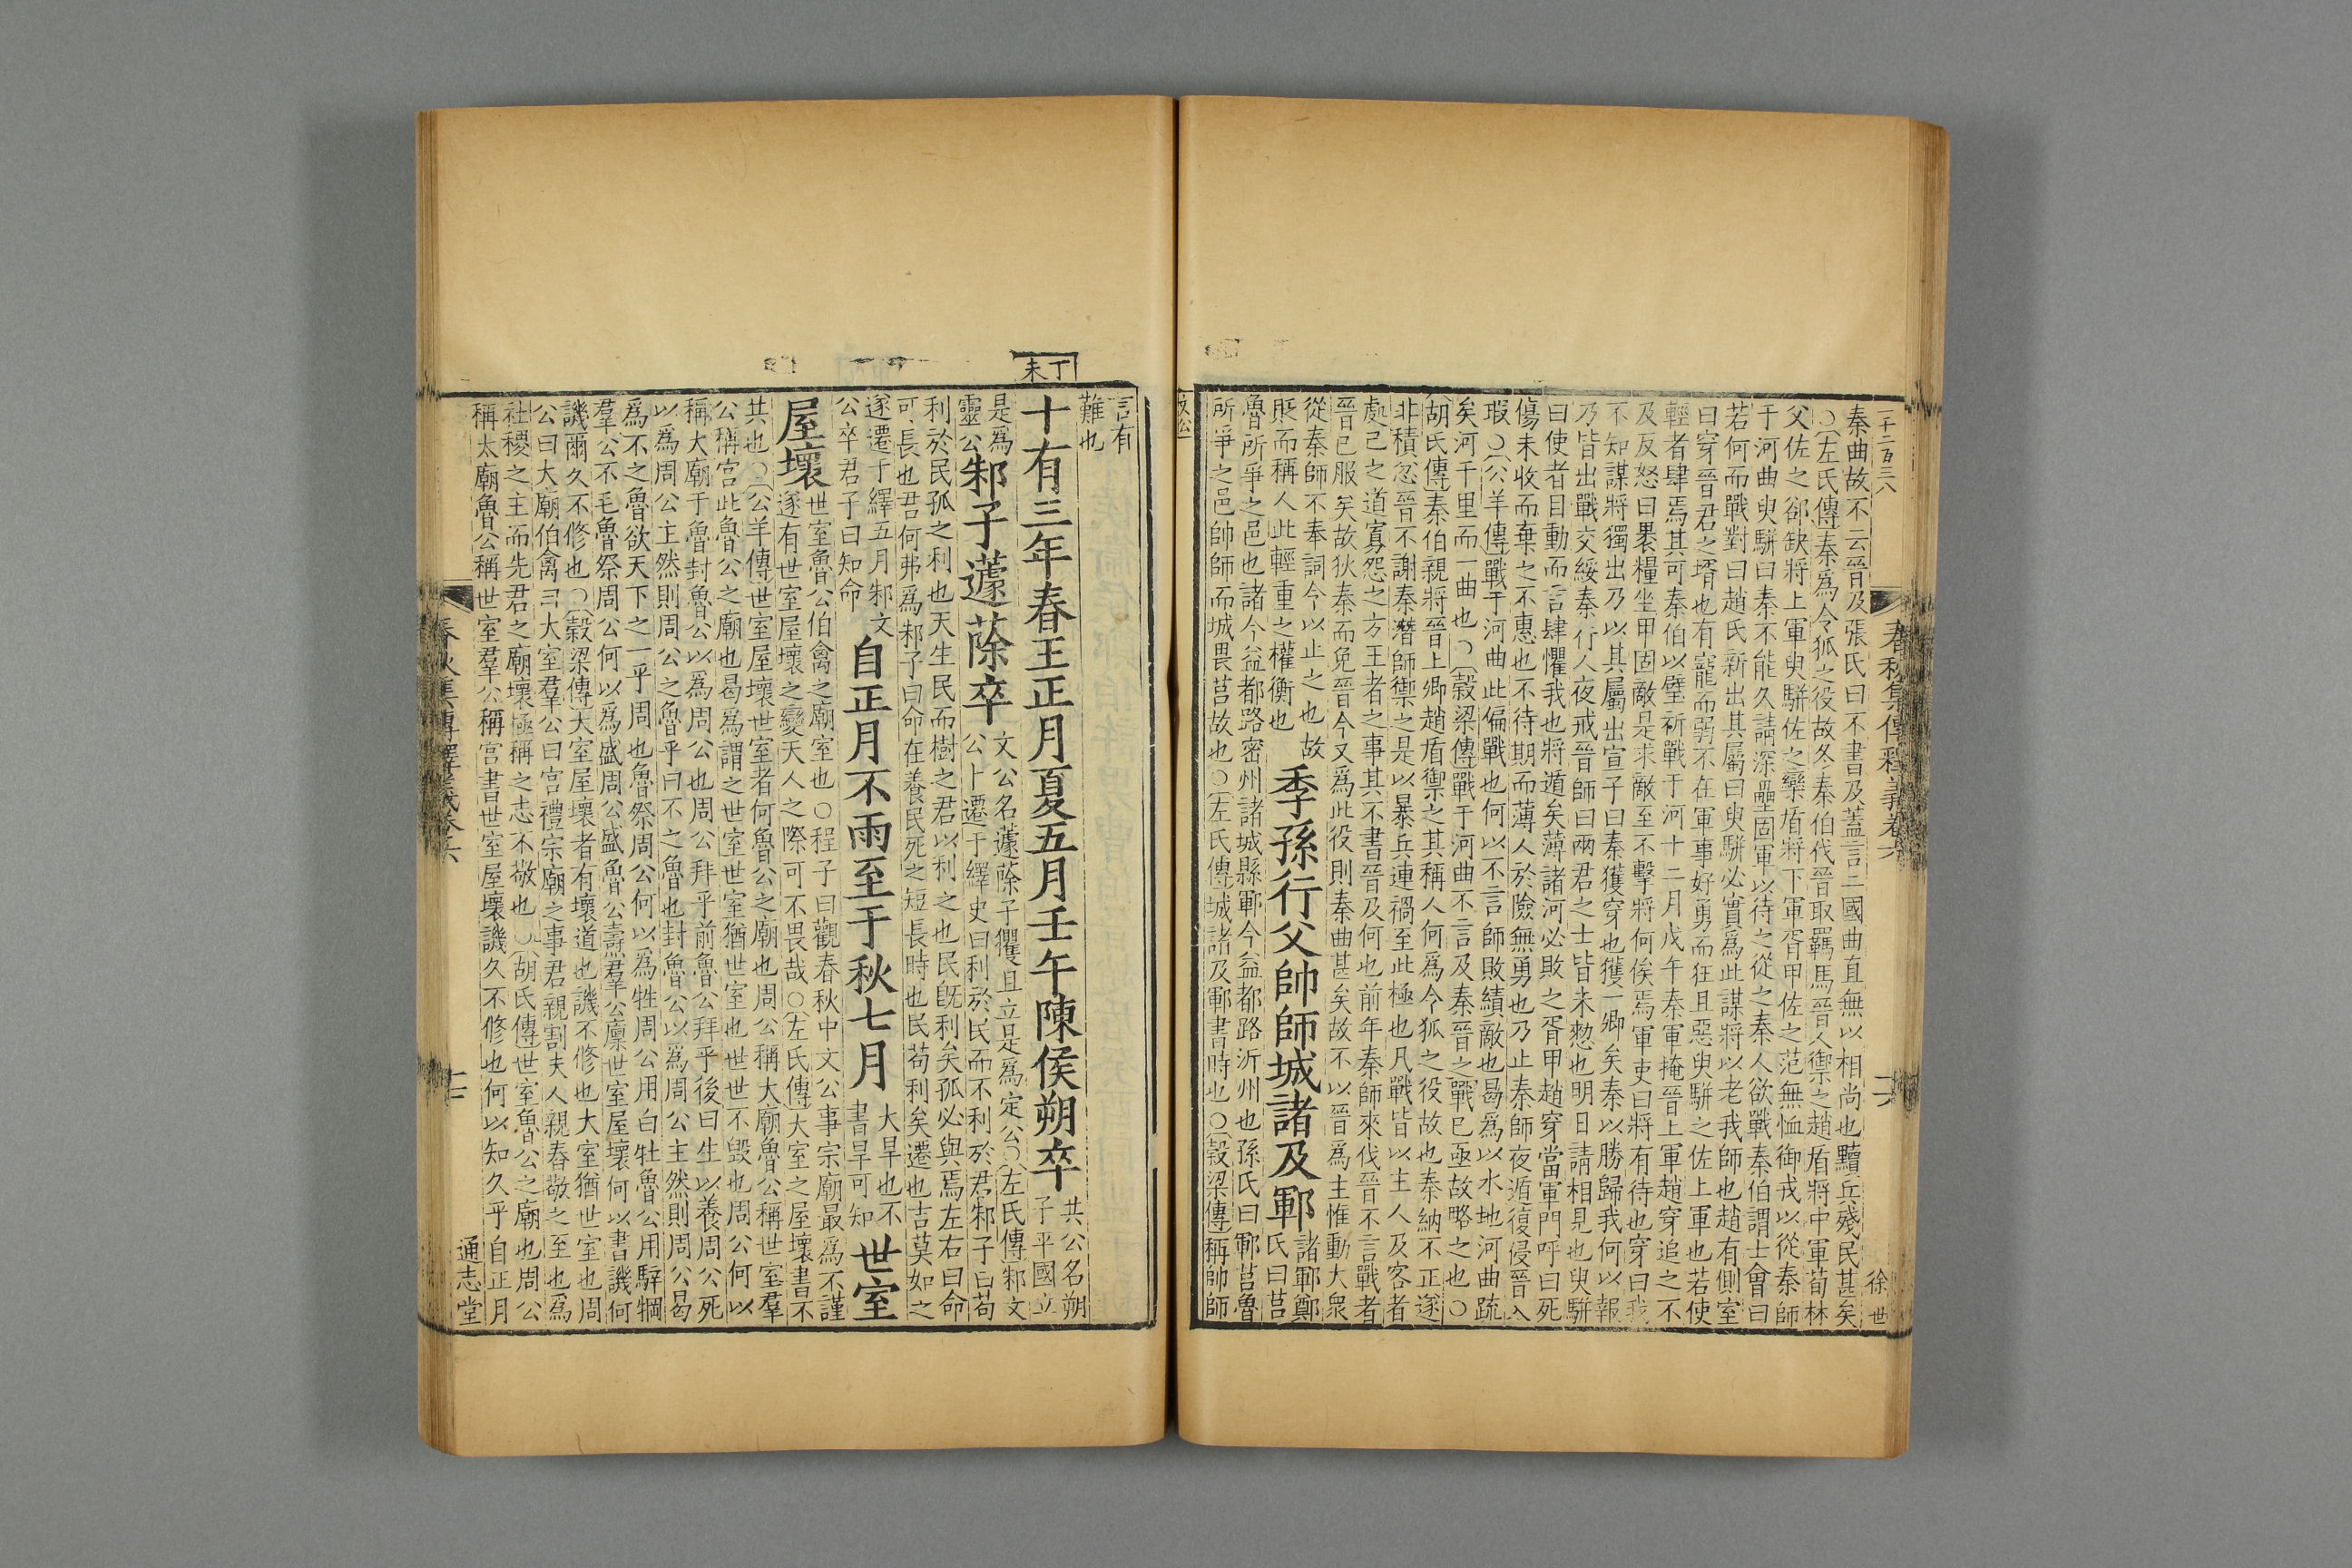 一千二百三八
徐世
春秋集傳釋義卷六
秦曲故不云晉及張氏曰不書及蓋言二國曲直無以相尚也黷兵殘民甚矣
○左氏傳秦爲令狐之役故冬秦伯伐晉取羈馬晉人禦之趙盾將中軍荀林
父佐之郤缺將上軍臾駢佐之欒盾將下軍胥甲佐之范無恤御戎以從秦師
于河曲臾駢曰秦不能久請深壘固軍以待之從之秦人欲戰秦伯謂士會曰
若何而戰對曰趙氏新出其屬曰臾駢必實爲此謀將以老我師也趙有側室
曰穿晉君之壻也有寵而弱不在軍事好勇而狂且惡臾駢之佐上軍也若使
輕者肆焉其可秦伯以璧祈戰于河十二月戊午秦軍掩晉上軍趙穿追之不
及反怒曰裹糧坐甲固敵是求敵至不擊將何俟焉軍吏曰將有待也穿曰我
不知謀將獨出乃以其屬出宣子曰秦獲穿也獲一卿矣秦以勝歸我何以報
乃皆出戰交綏秦行人夜戒晉師曰兩君之士皆未憖也明日請相見也臾駢
曰使者目動而言肆懼我也將遁矣薄諸河必敗之胥甲趙穿當軍門呼曰死
傷未收而棄之不惠也不待期而薄人於險無勇也乃止秦師夜遁復侵晉入
瑕○公羊傳戰于河曲此偏戰也何以不言師敗績敵也曷爲以水地河曲疏
矣河千里而一曲也○穀梁傳戰于河曲不言及秦晉之戰已亟故略之也○
胡氏傳秦伯親將晉上卿趙盾禦之其稱人何爲令狐之役故也秦納不正遂
非積忿晉不謝秦潛師禦之是以暴兵連禍至此極也凡戰皆以主人及客者
處己之道寡怨之方王者之事其不書晉及何也前年秦師來伐晉不言戰者
晉已服矣故狄秦而免晉今又爲此役則秦曲甚矣故不以晉爲主惟動大衆
從秦師不奉詞令以止之也故
貶而稱人此輕重之權衡也
季孫行父帥師城諸及鄆
諸鄆鄭
氏曰莒
魯所爭之邑也諸今益都路密州諸城縣鄆今益都路沂州也孫氏曰鄆莒魯
所爭之邑帥師而城畏莒故也○左氏傳城諸及鄆書時也○穀梁傳稱帥師
言有
難也
丁未
十有三年春王正月夏五月壬午陳侯朔卒
共公名朔
子平國立
是爲
靈公
邾子蘧蒢卒
文公名蘧蒢子貜且立是爲定公○左氏傳邾文
公卜遷于繹史曰利於民而不利於君邾子曰苟
利於民孤之利也天生民而樹之君以利之也民既利矣孤必與焉左右曰命
可長也君何弗爲邾子曰命在養民死之短長時也民苟利矣遷也吉莫如之
遂遷于繹五月邾文
公卒君子曰知命
自正月不雨至于秋七月
大旱也不
書旱可知
世室
屋壞
世室魯公伯禽之廟室也○程子曰觀春秋中文公事宗廟最爲不謹
遂有世室屋壞之變天人之際可不畏哉○左氏傳大室之屋壞書不
共也○公羊傳世室屋壞世室者何魯公之廟也周公稱大廟魯公稱世室羣
公稱宮此魯公之廟也曷爲謂之世室世室猶世室也世世不毀也周公何以
稱大廟于魯封魯公以爲周公也周公拜乎前魯公拜乎後曰生以養周公死
以爲周公主然則周公之魯乎曰不之魯也封魯公以爲周公主然則周公曷
爲不之魯欲天下之一乎周也魯祭周公何以爲牲周公用白牡魯公用騂犅
羣公不毛魯祭周公何以爲盛周公盛魯公燾羣公廩世室屋壞何以書譏何
譏爾久不修也○穀梁傳大室屋壞者有壞道也譏不修也大室猶世室也周
公曰大廟伯禽曰大室羣公曰宮禮宗廟之事君親割夫人親舂敬之至也爲
社稷之主而先君之廟壞極稱之志不敬也○胡氏傳世室魯公之廟也周公
稱太廟魯公稱世室羣公稱宮書世室屋壞譏久不修也何以知久乎自正月
春秋集傳釋義卷六
通志堂